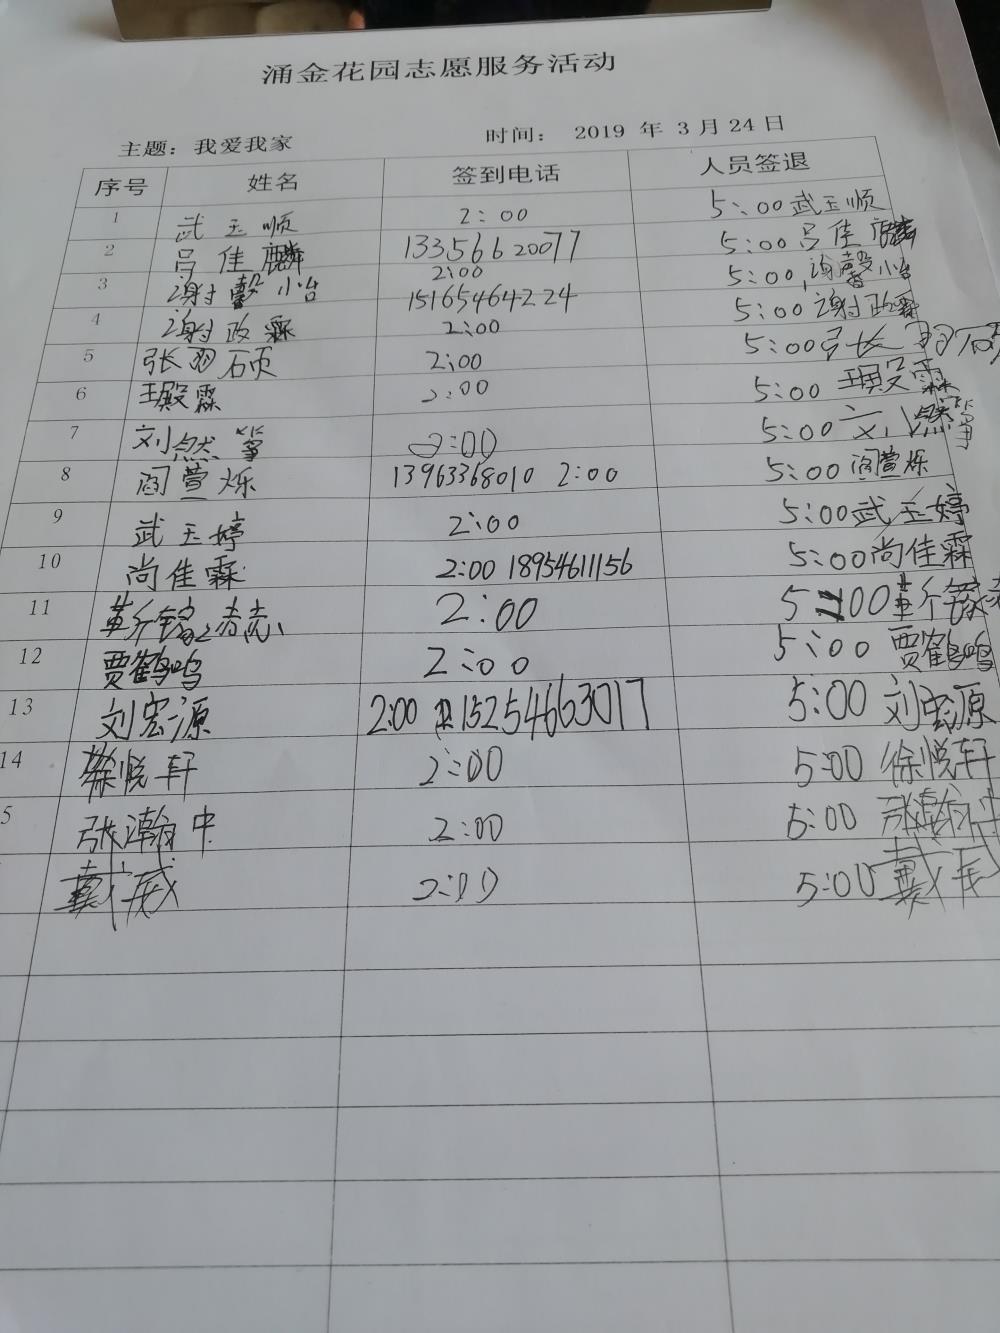 涌金花园志愿服务活动
主题：我爱我家 时间： 2019 年 3 月 24 日
序号 姓名 签到电话 人员签退
1 武玉顺 2:00 5:00 武玉顺
2 吕佳麟 13356620077 5:00 吕佳麟
3 谢馨怡 2:00 15165464224 5:00 谢馨怡
4 谢政霖 2:00 5:00 谢政霖
5 张羽硕 2:00 5:00 张羽硕
6 王殿霖 2:00 5:00 王殿霖
7 刘然筝 2:00 5:00 刘然筝
8 阎萱烁 13963368010 2:00 5:00 阎萱烁
9 武玉婷 2:00 5:00 武玉婷
10 尚佳霖 2:00 18954611156 5:00 尚佳霖
11 2:00 5:00
12 贾鹤鸣 2:00 5:00 贾鹤鸣
13 刘宏源 2:00 15254663017 5:00 刘宏源
14 徐悦轩 2:00 5:00 徐悦轩
5 张瀚中 2:00 5:00 张瀚中
戴威 2:00 5:00 戴威